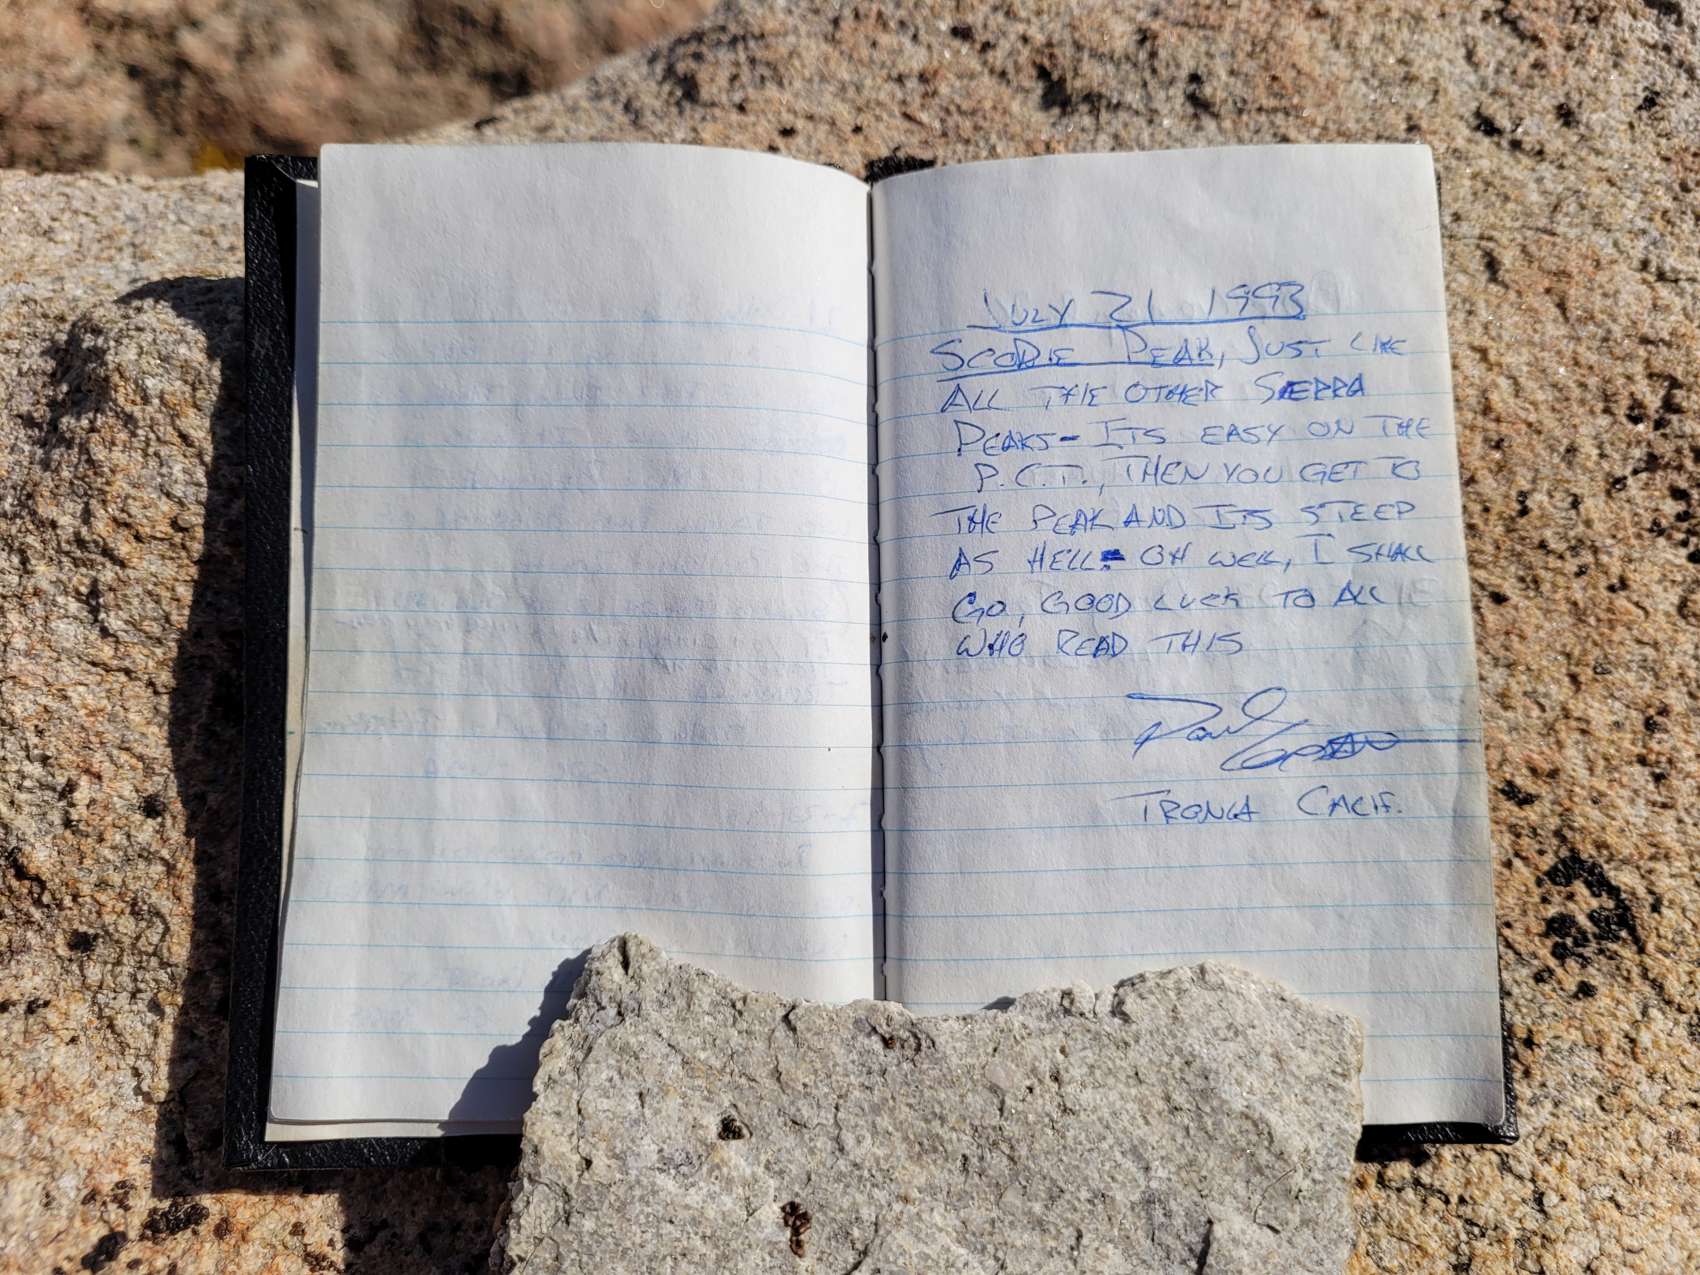 JULY 21 1993
SCODIE PEAK, JUST LIKE
ALL THE OTHER SIERRA
PEAKS- ITS EASY ON THE
P.C.T., THEN YOU GET TO
THE PEAK AND ITS STEEP
AS HELL- OH WELL, I SHALL
GO, GOOD LUCK TO ALL
WHO READ THIS
TRONA CALIF.